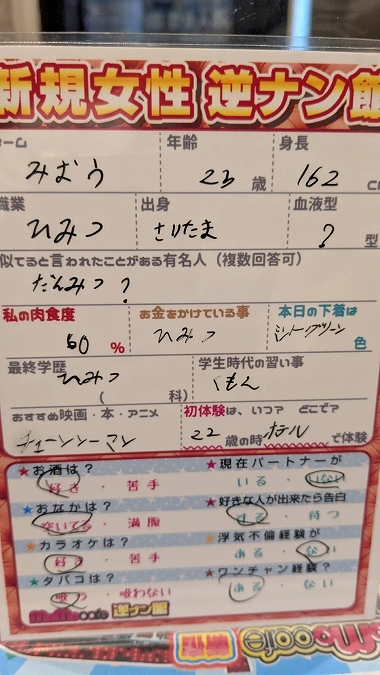 新規女性 逆ナン館
ーム 年齢 身長
みおう 23歳 162c
職業 出身 血液型
ひみつ さいたま ?型
似てると言われたことがある有名人(複数回答可)
だんみつ?
私の肉食度 お金をかけている事 本日の下着は
60% ひみつ ミントグリーン色
最終学歴 学生時代の習い事
ひみつ くもん
( 科)
おすすめ映画・本・アニメ 初体験は、いつ? どこで?
チェーンソーマン 22歳の時ホテルで体験
★お酒は? ★現在パートナーが
好き・苦手 いる・いない
★おなかは? ★好きな人が出来たら告白
空いてる・満腹 する・待つ
★カラオケは? ★浮気不倫経験が
好き・苦手 ある・ない
★タバコは? ★ワンチャン経験?
吸う・吸わない ある・ない
momocafe 逆ナン館
mocafe